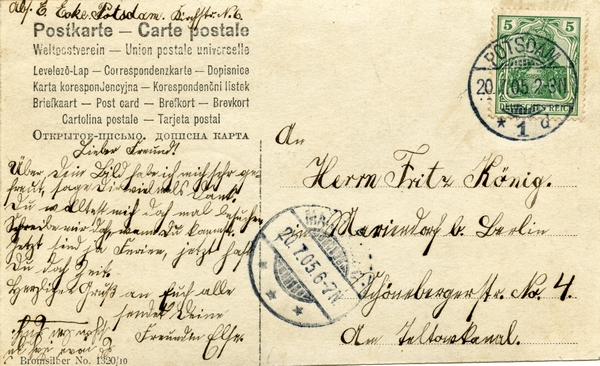 Abs. E. Ecke, Potsdam. Kirchstr. N. 6.
Postkarte — Carte postale
Weltpostverein — Union postale universelle
Levelező-Lap — Correspondenzkarte — Dopisnice
Karta korespondencyjna — Korespondenční listek
Briefkaart — Post card — Brefkort — Brevkort
Cartolina postale — Tarjeta postal
Открытое-письмо. дописна карта
5 5
DEUTSCHES REICH
POTSDAM
20.7.05.2-3N
* 1 d
Lieber Freund!
Über Dein Bild habe ich mich sehr ge-
freut, sage Dir vielmals Dank.
Du wolltest mich doch mal besuchen
Schreibe mir doch wann Du kommst.
Jetzt sind ja Ferien, jetzt hast
Du doch Zeit.
Herzlichen Gruß an Euch alle
sendet Deine
Freundin Else.
An
Herrn Fritz König.
Mariendorf b. Berlin
Schönebergerstr. No. 4.
Am Teltowkanal.
20.7.05.6-7N
Bromsilber No. 1320/10